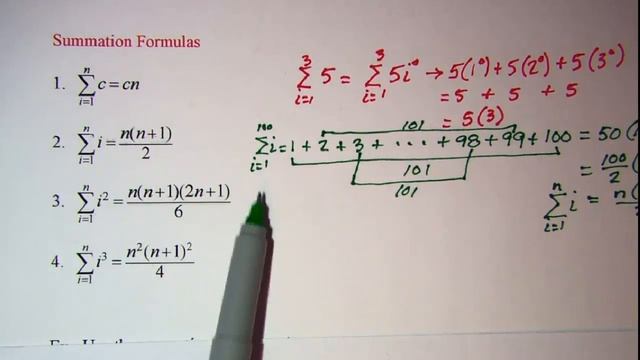 Summation Formulas
1. \sum_{i=1}^{n} c = cn
2. \sum_{i=1}^{n} i = \frac{n(n+1)}{2}
3. \sum_{i=1}^{n} i^2 = \frac{n(n+1)(2n+1)}{6}
4. \sum_{i=1}^{n} i^3 = \frac{n^2(n+1)^2}{4}
\sum_{i=1}^{3} 5 = \sum_{i=1}^{3} 5i^0 → 5(1^0) + 5(2^0) + 5(3^0)
= 5 + 5 + 5
= 5(3)
101
\sum_{i=1}^{100} i = 1 + 2 + 3 + ... + 98 + 99 + 100 = 50(
101
= \frac{100}{2}(
101
\sum_{i=1}^{n} i = n(